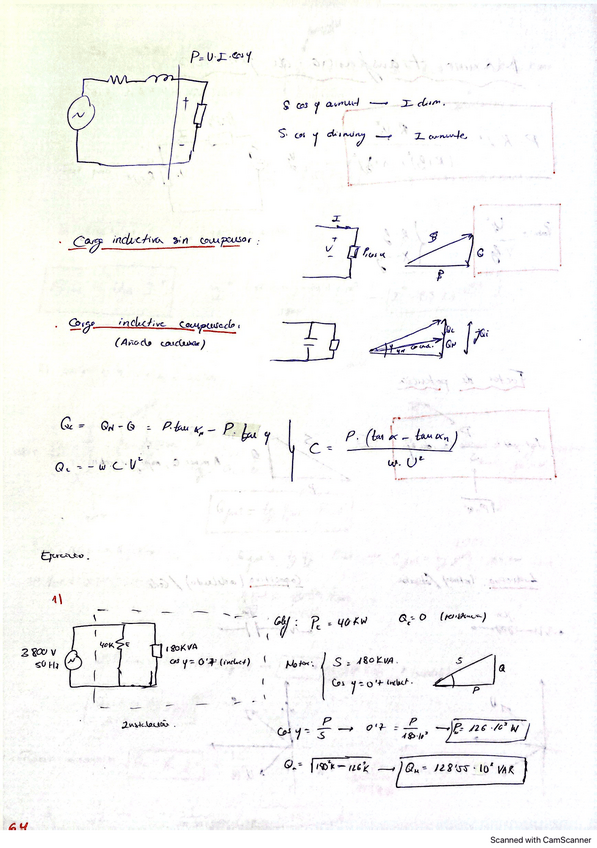 P=U·I·cosφ
S cos φ aument → I dism.
S. cos φ disminuy → I aumenta
· Carga inductiva sin compensar:
I
+
V
-
S
Q
P
· Carga inductiva compensada:
(Añado condensador)
Qc
QN
Qc = QN - Q = P·tan αn - P·tan φ
C = P·(tan α - tan αn) / w·U²
Qc = -w C·V²
Ejercicio.
1)
3 800 V
50 Hz
40K
180KVA
cos φ = 0'7 (induct)
Instalación
Calef: Pc = 40KW Qc = 0 (resistencia)
Motor: S = 180KVA.
Cos φ = 0'7 induct.
S
Q
P
Cos φ = P/S → 0'7 = P/180·10³ → P = 126·10³ W
Q = √180²K - 126²K → QM = 128'55·10³ VAR
64
Scanned with CamScanner